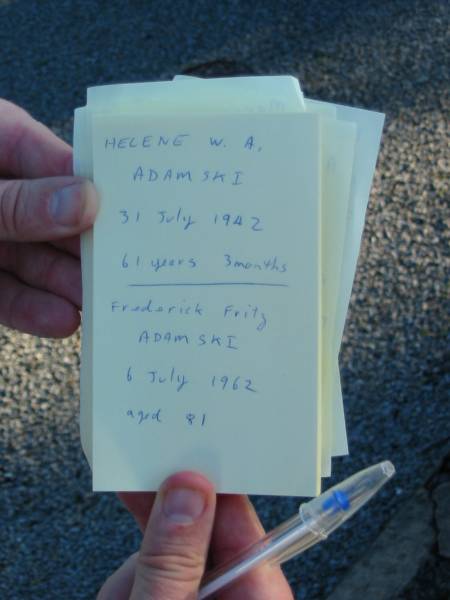 HELENE W. A.
ADAMSKI
31 July 1942
61 years 3months
Frederick Fritz
ADAMSKI
6 July 1962
aged 81